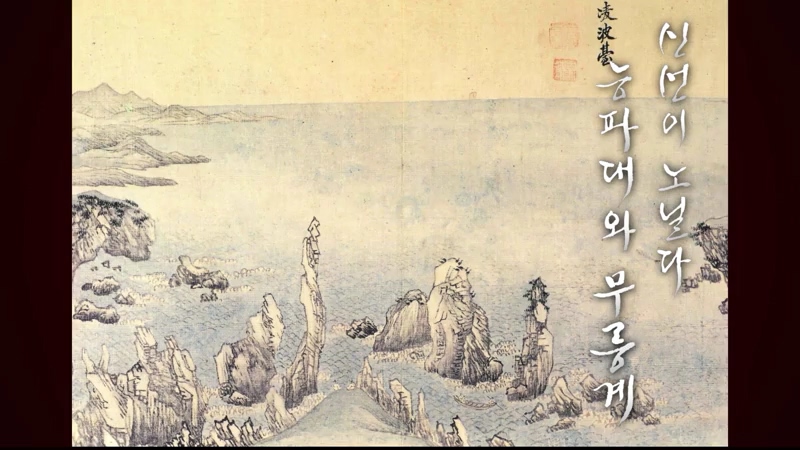 凌波臺
신선이 노닐다
능파대와 무릉계